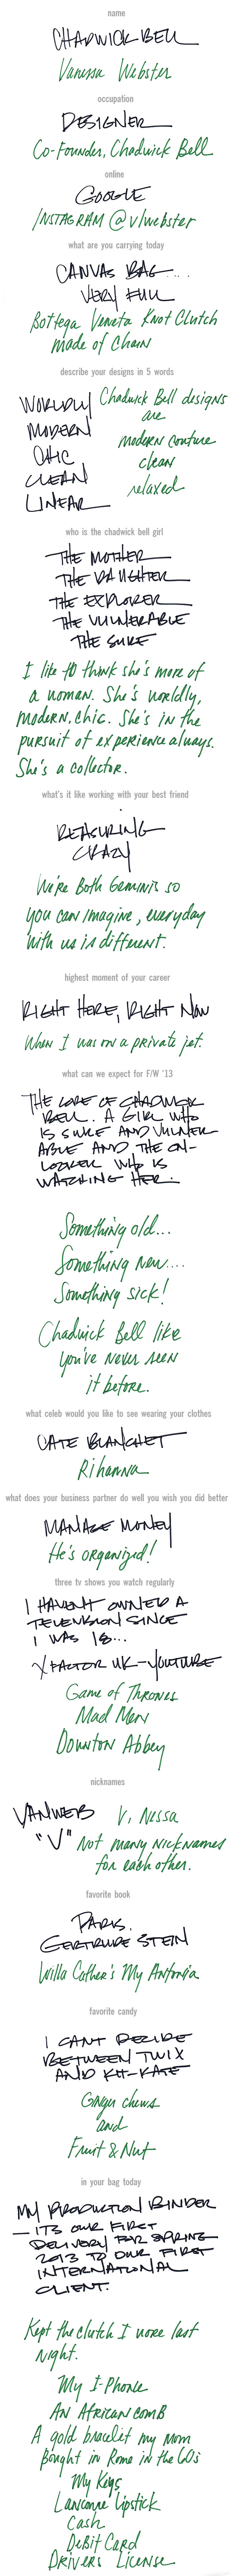 name
CHADWICK BELL
Vanessa Webster
occupation
DESIGNER
Co-Founder, Chadwick Bell
online
GOOGLE
INSTAGRAM @vlwebster
what are you carrying today
CANVAS BAG....
VERY FULL
Bottega Veneta Knot Clutch
made of Chain
describe your designs in 5 words
WORLDLY
MODERN
CHIC
CLEAN
LINEAR
Chadwick Bell designs
are
modern couture
clean
relaxed
who is the chadwick bell girl
THE MOTHER
THE DAUGHTER
THE EXPLORER
THE VULNERABLE
THE SURE
I like to think she's more of
a woman. She's worldly,
modern, chic. She's in the
pursuit of experience always.
She's a collector.
what's it like working with your best friend
REASURING
CRAZY
We're Both Geminis so
you can imagine, everyday
with us is different.
highest moment of your career
RIGHT HERE, RIGHT NOW
When I was on a private jet.
what can we expect for F/W '13
THE CORE OF CHADWICK
BELL. A GIRL WHO
IS SURE AND VULNER
ABLE AND THE ON-
LOOKER WHO IS
WATCHING HER.
Something old...
Something new....
Something sick!
Chadwick Bell like
you've never seen
it before.
what celeb would you like to see wearing your clothes
CATE BLANCHET
Rihanna
what does your business partner do well you wish you did better
MANAGE MONEY
He's organized!
three tv shows you watch regularly
I HAVEN'T OWNED A
TELEVISION SINCE
I WAS 18...
X FACTOR UK - YOUTUBE
Game of Thrones
Mad Men
Downton Abbey
nicknames
VANWEB
"V"
V, Nessa
Not many nicknames
for each other.
favorite book
PARIS.
GERTRUDE STEIN
Willa Cather's My Antonia
favorite candy
I CANT DECIDE
BETWEEN TWIX
AND KIT-KATE
Ginger chews
and
Fruit & Nut
in your bag today
MY PRODUCTION BINDER
- ITS OUR FIRST
DELIVERY FOR SPRING
2013 TO OUR FIRST
INTERNATIONAL
CLIENT.
Kept the clutch I wore last
night.
My I-Phone
An African comb
A gold bracelet my Mom
Bought in Rome in the 60s
My Keys
Lancome Lipstick
Cash
Debit Card
Drivers License